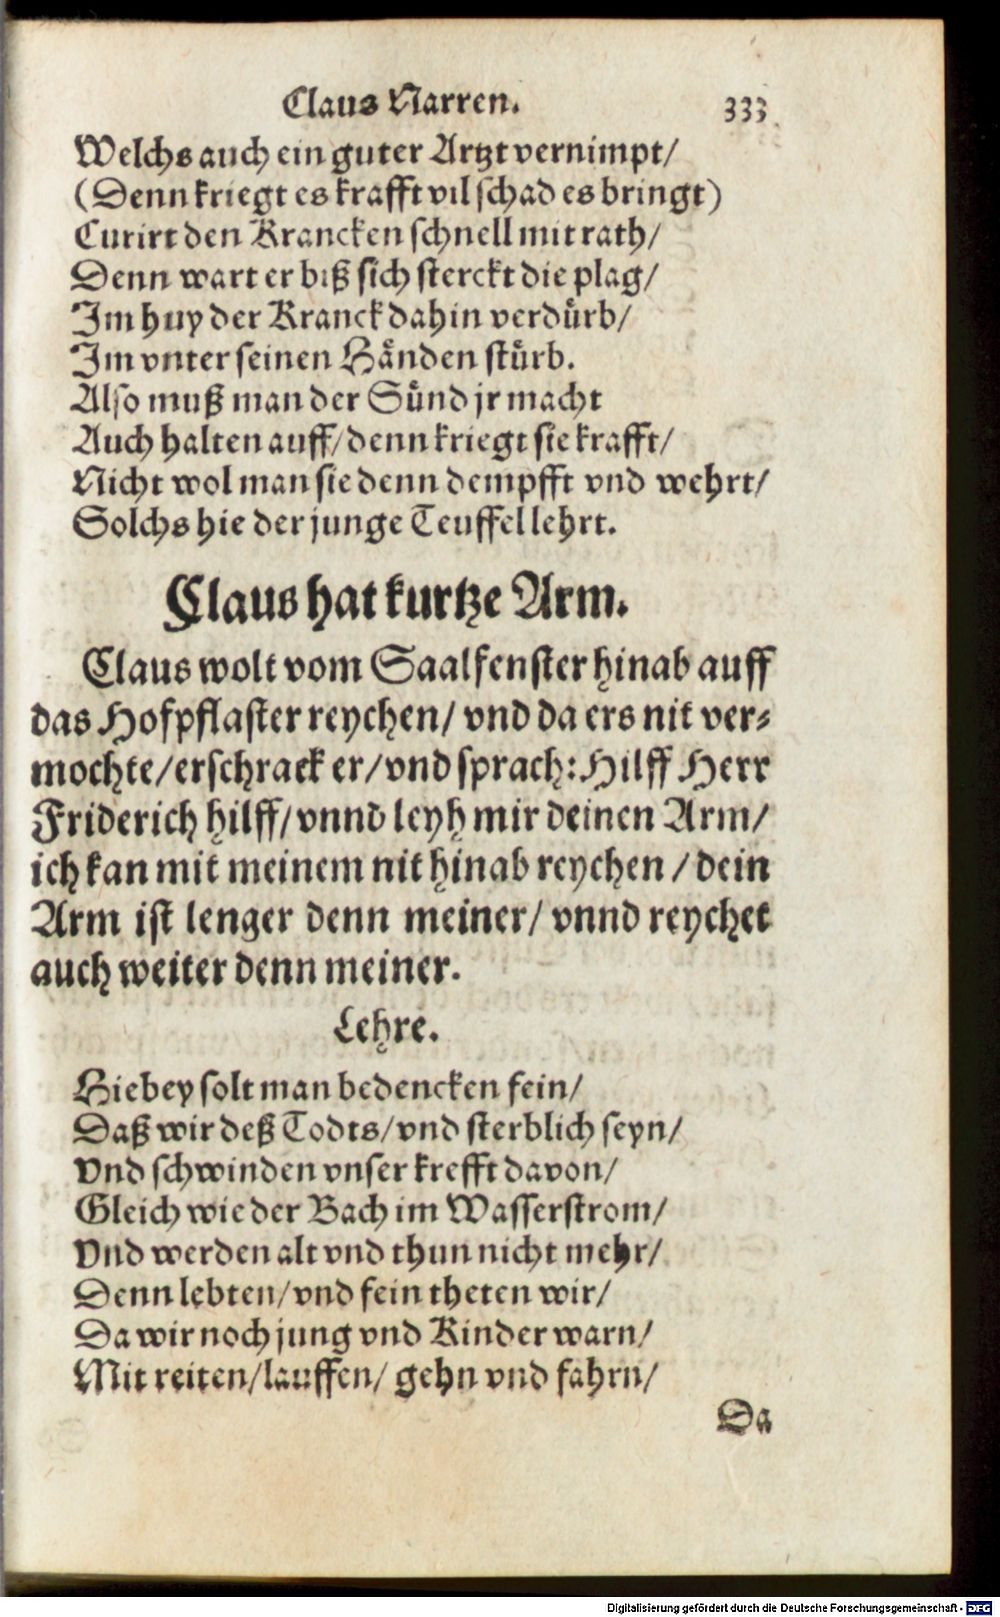 Claus Narren. 333
Welchs auch ein guter Artzt vernimpt/
(Denn kriegt es krafft vil schad es bringt)
Curirt den Krancken schnell mit rath/
Denn wart er biß sich sterckt die plag/
Im huy der Kranck dahin verdürb/
Im vnter seinen Händen stürb.
Also muß man der Sünd jr macht
Auch halten auff/ denn kriegt sie krafft/
Nicht wol man sie denn dempfft vnd wehrt/
Solchs hie der junge Teuffel lehrt.
Claus hat kurtze Arm.
Claus wolt vom Saalfenster hinab auff
das Hofpflaster reychen/ vnd da ers nit ver-
mochte/erschrack er/vnd sprach: Hilff Herr
Friderich hilff/ vnnd leyh mir deinen Arm/
ich kan mit meinem nit hinab reychen / dein
Arm ist lenger denn meiner/ vnnd reychet
auch weiter denn meiner.
Lehre.
Hiebey solt man bedencken fein/
Daß wir deß Todts/vnd sterblich seyn/
Vnd schwinden vnser krefft davon/
Gleich wie der Bach im Wasserstrom/
Vnd werden alt vnd thun nicht mehr/
Denn lebten/vnd fein theten wir/
Da wir noch jung vnd Kinder warn/
Mit reiten/lauffen/ gehn vnd fahrn/
Da
Digitalisierung gefördert durch die Deutsche Forschungsgemeinschaft - DFG